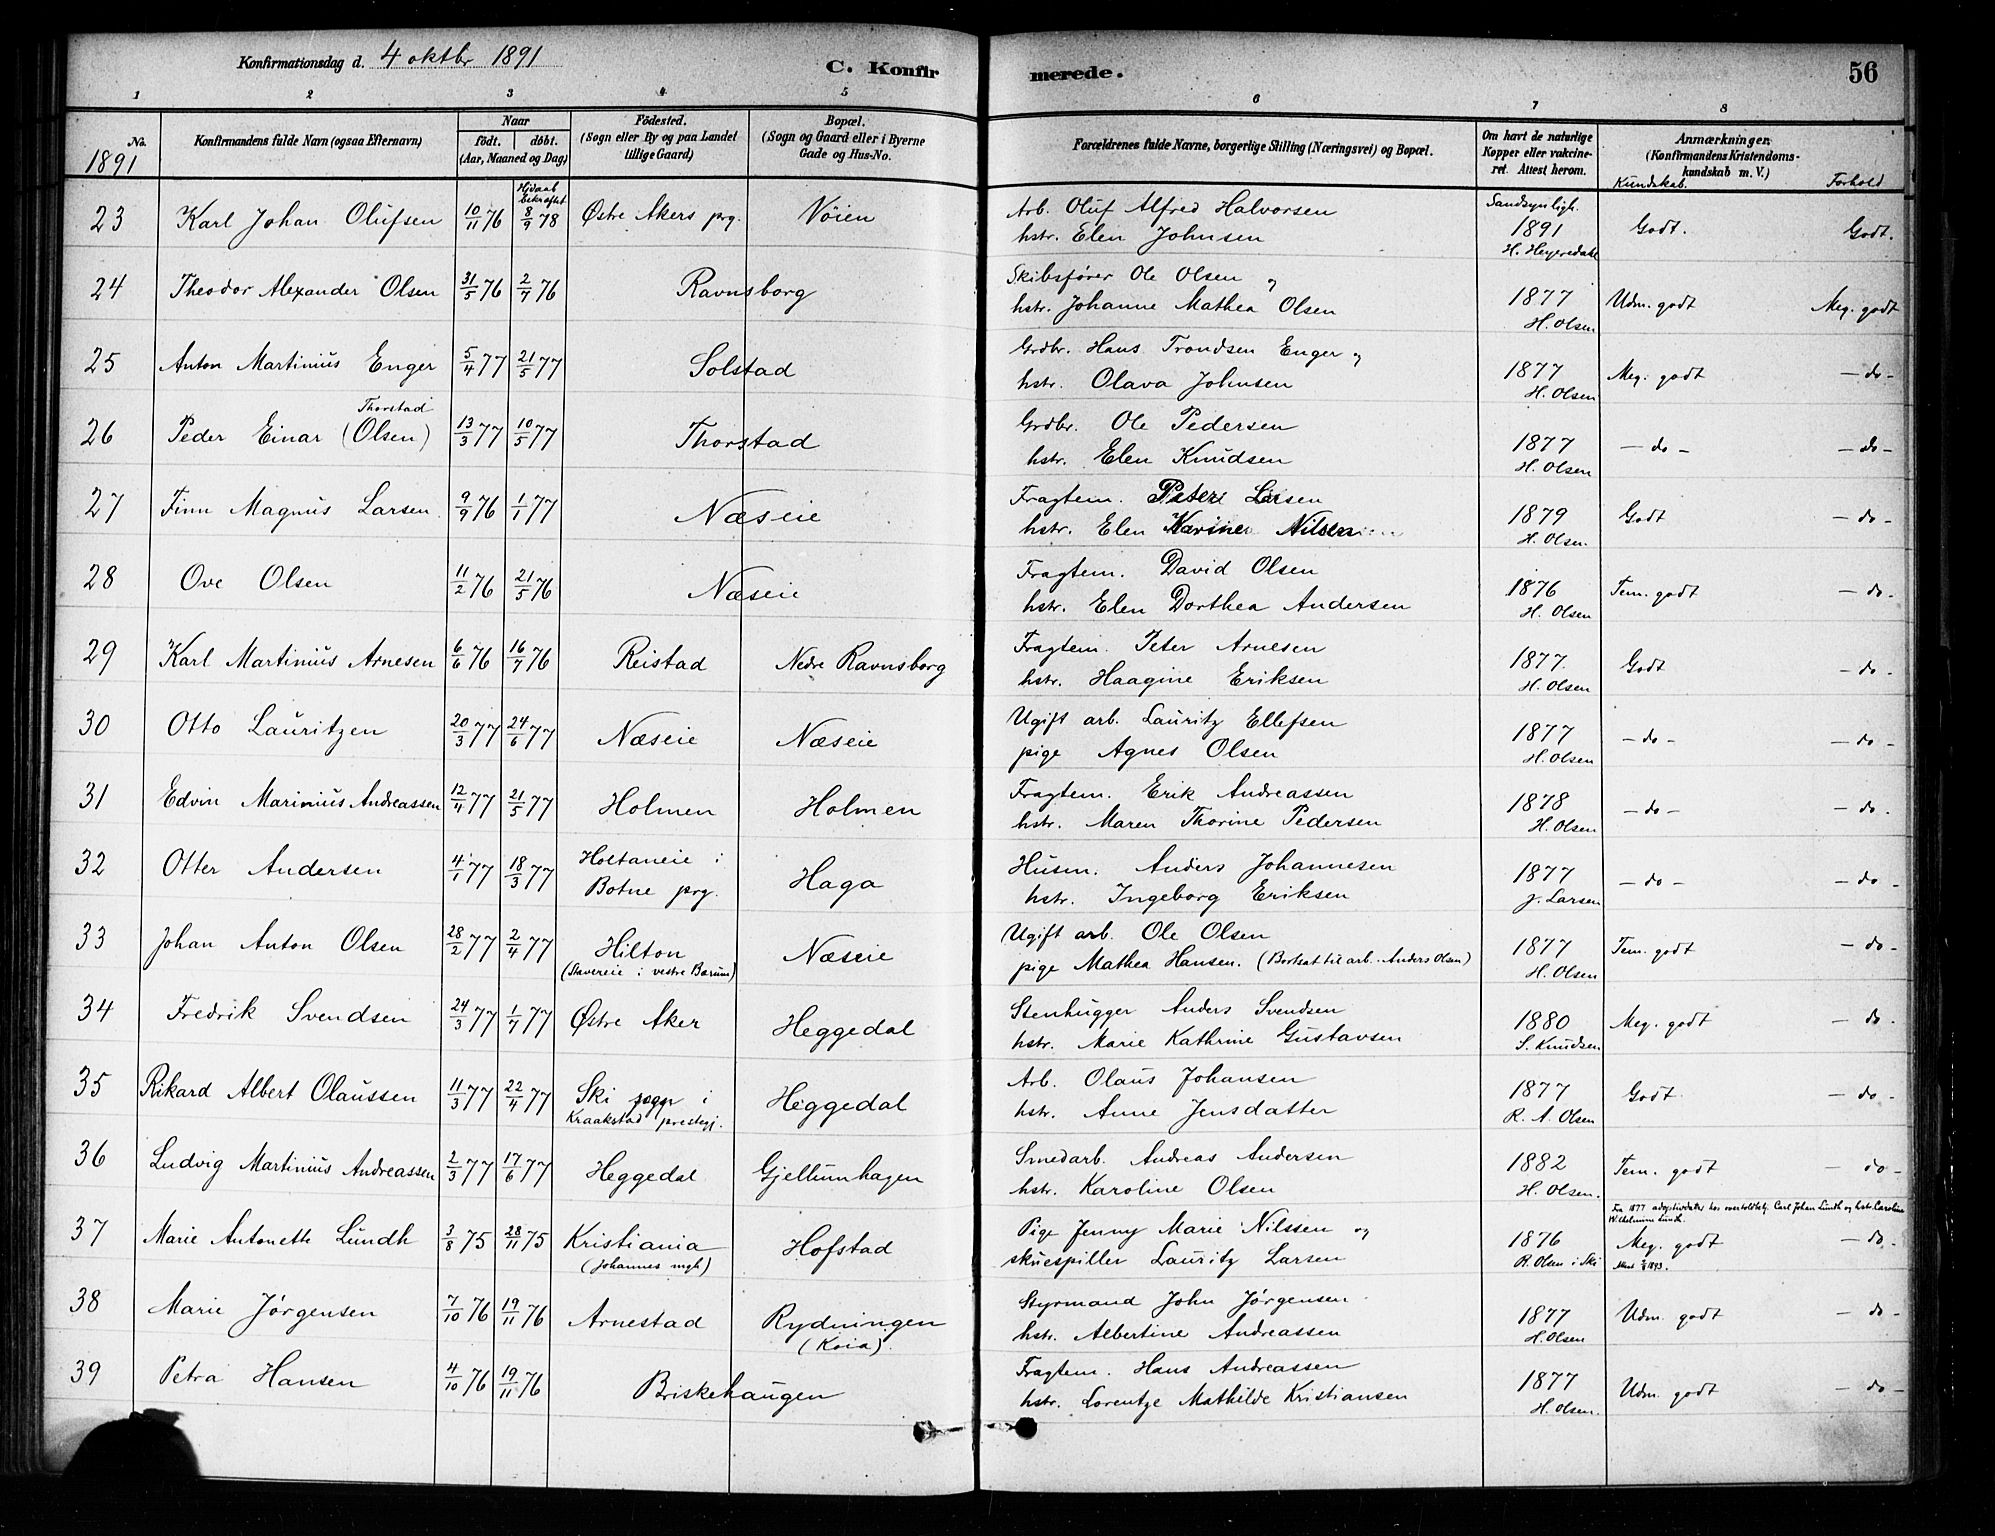 Konfirmationsdag d. 4 oktbr 1891
C. Konfirmerede.
56
1 2 3 4 5 6 7 8
No. 1891
Konfirmandens fulde Navn (ogsaa Efternavn)
Naar
födt. döbt.
(Aar, Maaned og Dag)
Födested.
(Sogn eller By og paa Landet
tillige Gaard)
Bopæl.
(Sogn og Gaard eller i Byerne
Gade og Hus-No.
Forældrenes fulde Navne, borgerlige Stilling (Næringsvei) og Bopæl.
Om havt de naturlige
Kopper eller vakcine-
ret. Attest herom.
Anmærkninger.
(Konfirmandens Kristendoms-
kundskab m. V.)
Kundskab. Forhold
bekræftet Sandsynligh.
23 Karl Johan Olufsen 10/11 76 8/9 78 Østre Akers prg. Vöien Arb. Oluf Alfred Halvorsen
hstr. Elen Johnsen 1891 Godt. Godt.
24 Theodor Alexander Olsen 31/5 76 2/7 76 Ravnsborg Skibsfører Ole Olsen og
hstr. Johanne Mathea Olsen 1877 H. Olsen Udm. godt Meg. godt
25 Anton Martinius Enger 5/4 77 21/5 77 Solstad Grdbr. Hans Trondsen Enger og
hstr. Olava Johnsen 1877 H. Olsen Meg. godt - do -
Thorstad
26 Peder Einar (Olsen) 13/3 77 10/5 77 Thorstad Grdbr. Ole Pedersen
hstr. Elen Knudsen 1877 H. Olsen - do - - do -
27 Finn Magnus Larsen 9/9 76 1/1 77 Næseie Fragtem. Peter Larsen
hstr. Elen Karine Nilsen 1879 H. Olsen. Godt - do -
28 Ove Olsen 11/2 76 21/5 76 Næseie Fragtem. David Olsen
hstr. Elen Dorthea Andersen 1876 H. Olsen Tem. godt - do -
29 Karl Martinius Arnesen 6/6 76 16/7 76 Reistad Nedre Ravnsborg Fragtem. Peter Arnesen
hstr. Haagine Eriksen 1877. H. Olsen Godt - do -
30 Otto Lauritzen 20/3 77 24/6 77 Næseie Næseie Ugift arb. Lauritz Ellefsen
pige Agnes Olsen 1877 H. Olsen - do - - do -
31 Edvin Marinius Andreassen 12/4 77 21/5 77 Holmen Holmen Fragtem. Erik Andreassen
hstr. Maren Thorine Pedersen 1878 H. Olsen - do - - do.
32 Otter Andersen 4/1 77 18/3 77 Holtaneie i
Botne prg. Haga Husm. Anders Johannesen
hstr. Ingeborg Eriksen 1877 J. Larsen - do - - do -
33 Johan Anton Olsen 28/2 77 2/4 77 Hilton
(Stavereie i vestre Bærum) Næseie Ugift arb. Ole Olsen
pige Mathea Hansen. (Bortsat til arb. Anders Olsen) 1877 H. Olsen Tem. godt - do -
34 Fredrik Svendsen 24/3 77 1/7 77 Østre Aker Heggedal Stenhugger Anders Svendsen
hstr. Marie Kathrine Gustavsen 1880 S. Knudsen Meg. godt - do -
35 Rikard Albert Olaussen 11/3 77 22/4 77 Ski sogn i
Kraakstad prestegj. Heggedal Arb. Olaus Johansen
hstr. Anne Jensdatter 1877 R. A. Olsen Godt - do -
36 Ludvig Martinius Andreassen 2/3 77 17/6 77 Heggedal Gjellumhagen Smedarb. Andreas Andersen
hstr. Karoline Olsen 1882 H. Olsen. Tem. godt - do -
Fra 1877 adoptivdatter hos overtoldbetj. Carl Johan Lundh og hstr. Caroline
Wilhelmine Lundh.
37 Marie Antonette Lundh 3/8 75 28/11 75 Kristiania
(Johannes mgh) Hofstad Pige Jenny Marie Nilssen og
skuespiller Lauritz Larsen 1876 R. Olsen i Ski Meg. godt - do -
38 Marie Jørgensen 7/10 76 19/11 76 Arnestad Rydningen
(Koia). Styrmand John Jørgensen
hstr. Albertine Andreassen 1877 H. Olsen Udm. godt - do -
39 Petra Hansen 4/10 76 19/11 76 Briskehaugen Fragtem. Hans Andreassen
hstr. Lorentze Mathilde Kristiansen 1877 H. Olsen. Udm. godt - do -